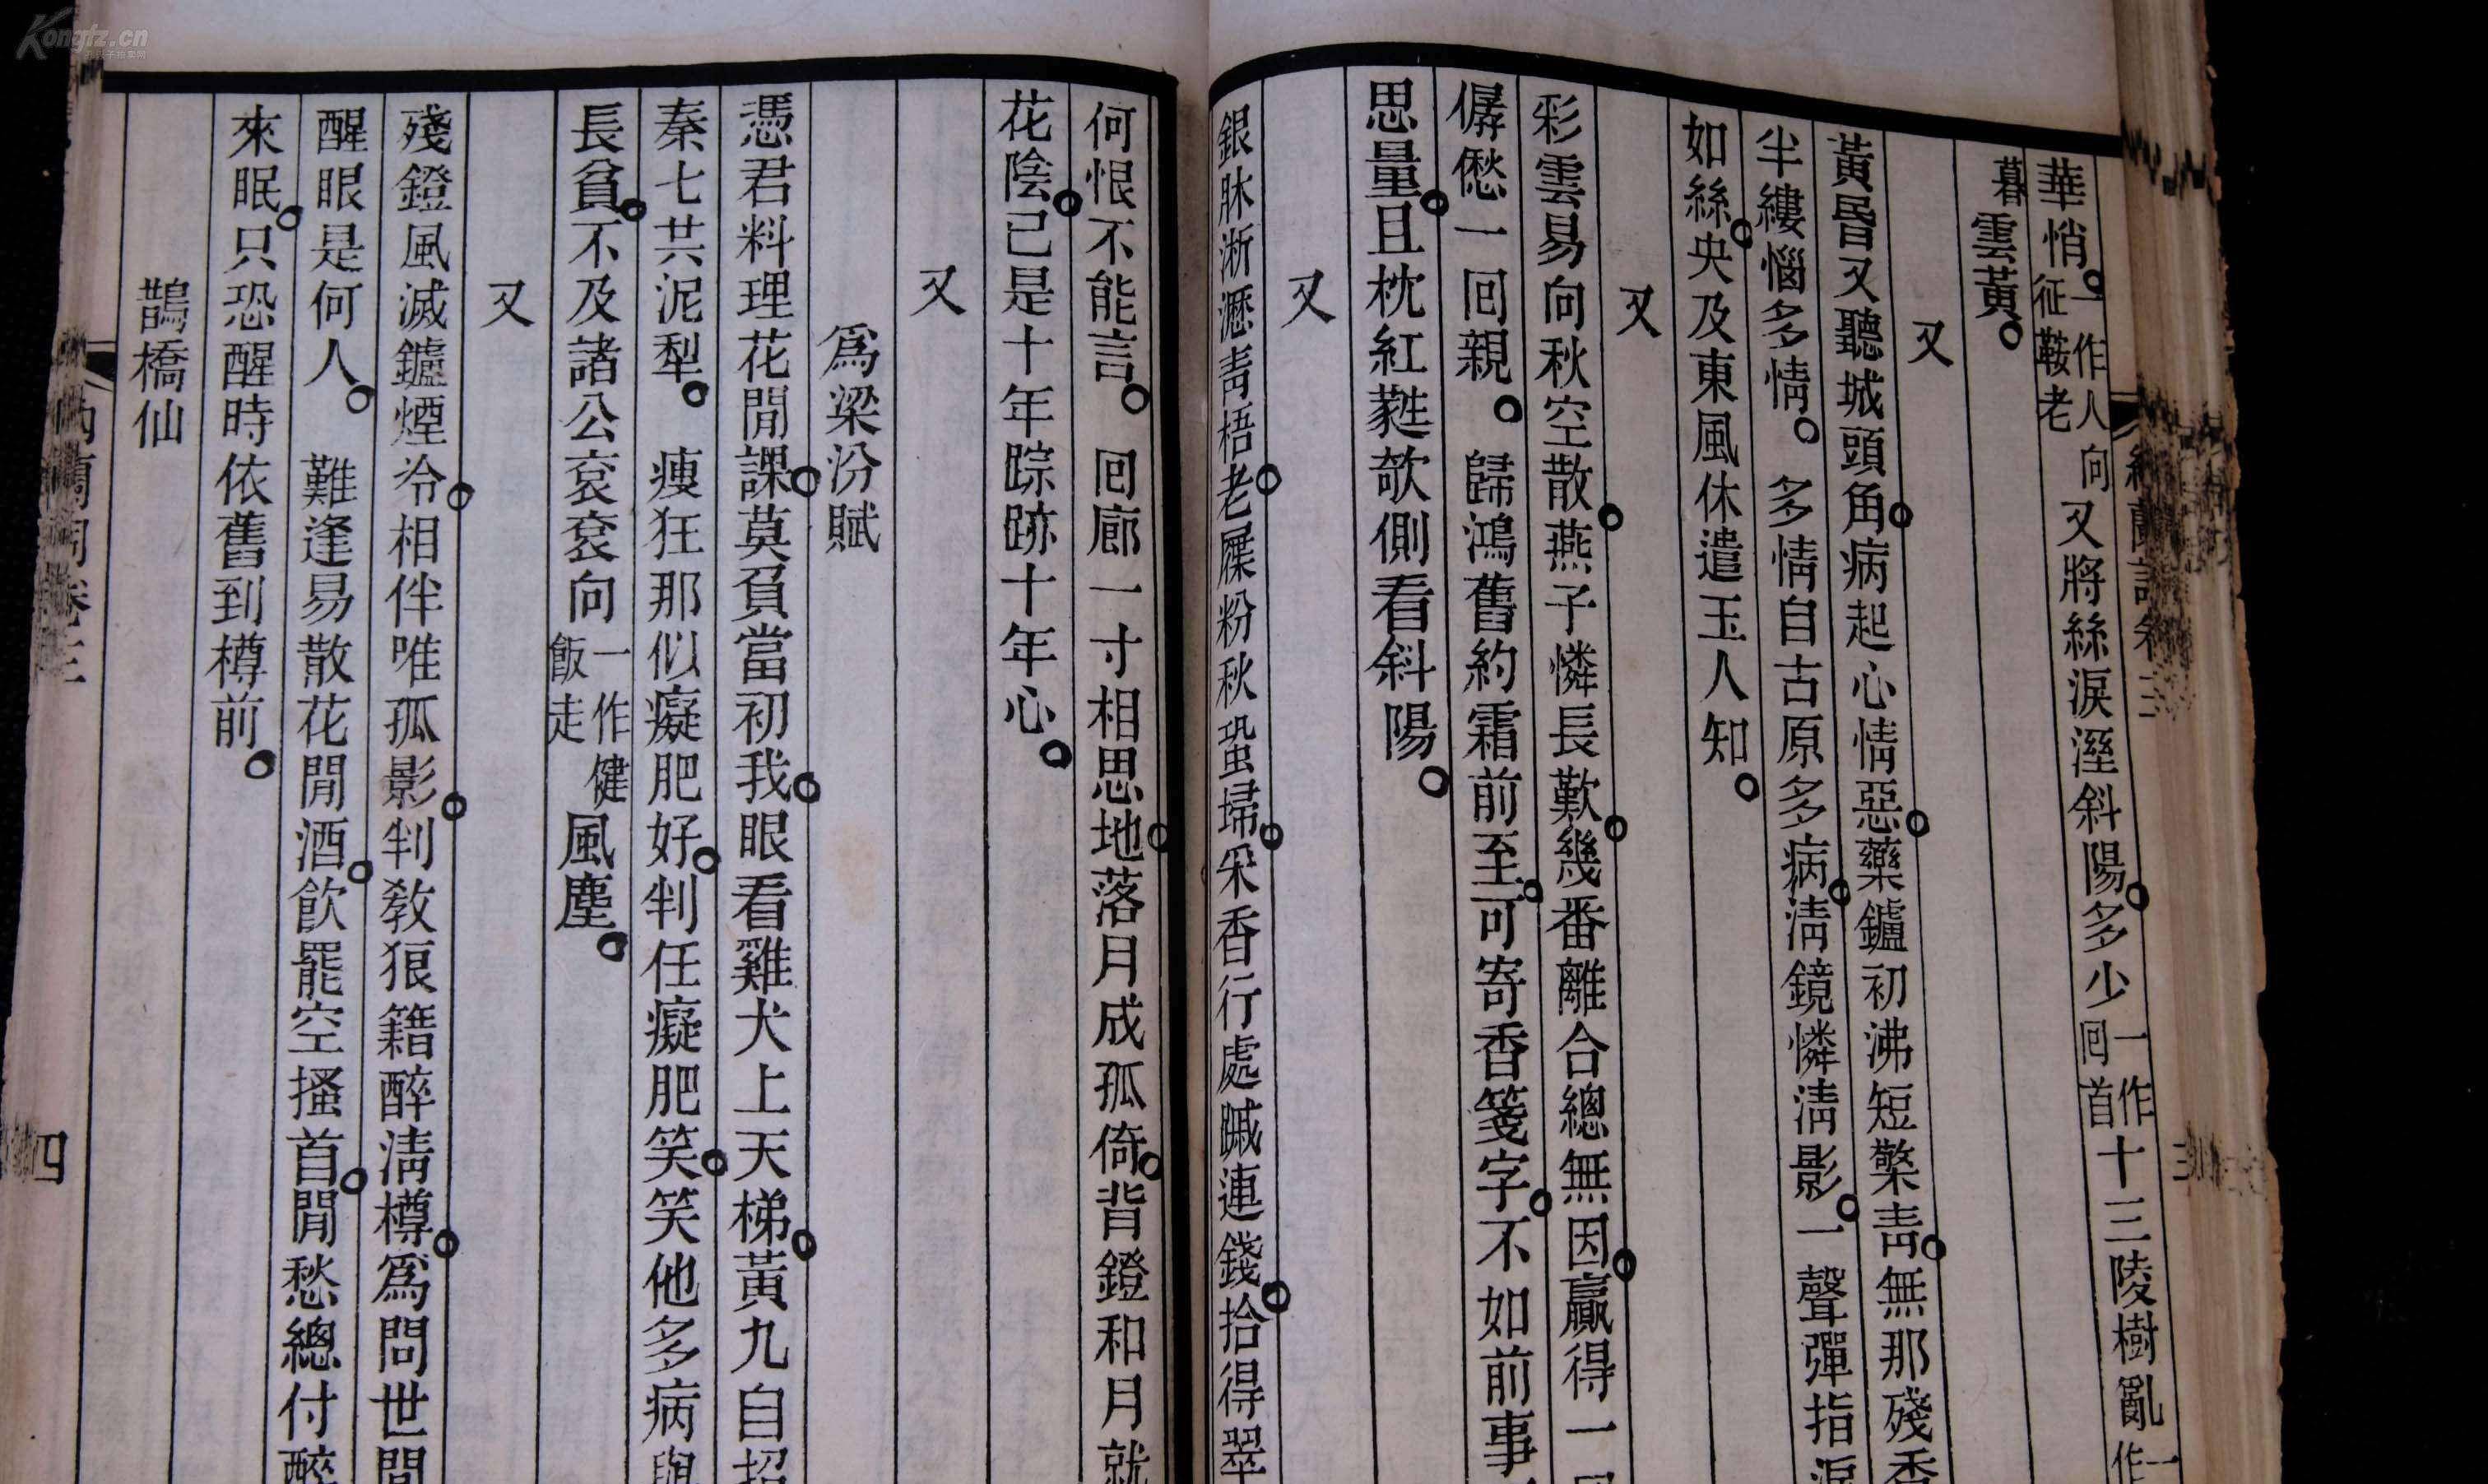 華悄一作人向征鞍老又將絲淚溼斜陽多少一作回首十三陵樹亂一作
暮雲黃
又
黃昏又聽城頭角病起心情惡藥鑪初沸短檠青無那殘香
半縷惱多情 多情自古原多病清鏡憐清影一聲彈指淚
如絲央及東風休遣玉人知
又
彩雲易向秋空散燕子憐長歎幾番離合總無因贏得一回
僝僽一回親 歸鴻舊約霜前至可寄香箋字不如前事
思量且枕紅蕤欹側看斜陽
又
銀牀淅瀝青梧老屧粉秋蛩掃采香行處蹙連錢拾得翠
何恨不能言 回廊一寸相思地落月成孤倚背鐙和月就
花陰已是十年踪跡十年心
又
爲梁汾賦
憑君料理花閒課莫負當初我眼看雞犬上天梯黃九自招
秦七共泥犁 瘦狂那似癡肥好判任癡肥笑笑他多病與
長貧不及諸公袞袞向一作健飯走風塵
又
殘鐙風滅鑪煙冷相伴唯孤影判敎狼籍醉清樽爲問世間
醒眼是何人 難逢易散花閒酒飲罷空搔首閒愁總付醉
來眠只恐醒時依舊到樽前
鵲橋仙
納蘭詞卷三
四
Kongfz.cn